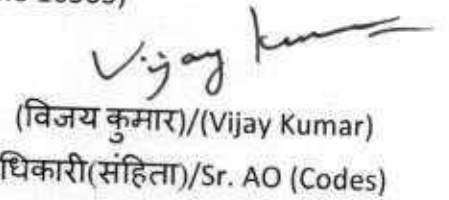 Vijay Kumar
(विजय कुमार)/(Vijay Kumar)
धिकारी(संहिता)/Sr. AO (Codes)